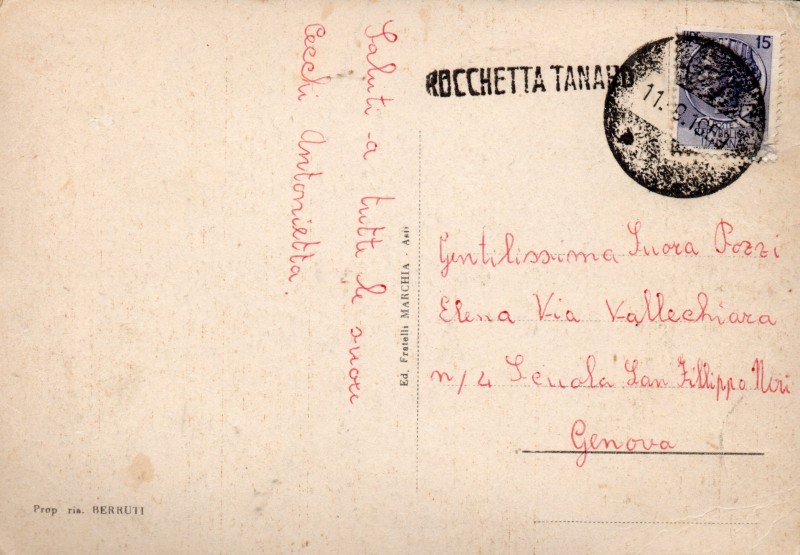 Saluti a tutte le suore
Cecchi Antonietta.
ROCCHETTA TANARO
15
Gentilissima Suora Pozzi
Elena Via Vallechiara
n/4 Scuola San Fillippo Neri
Genova
Ed. Fratelli MARCHIA - Asti
Prop ris. BERRUTI